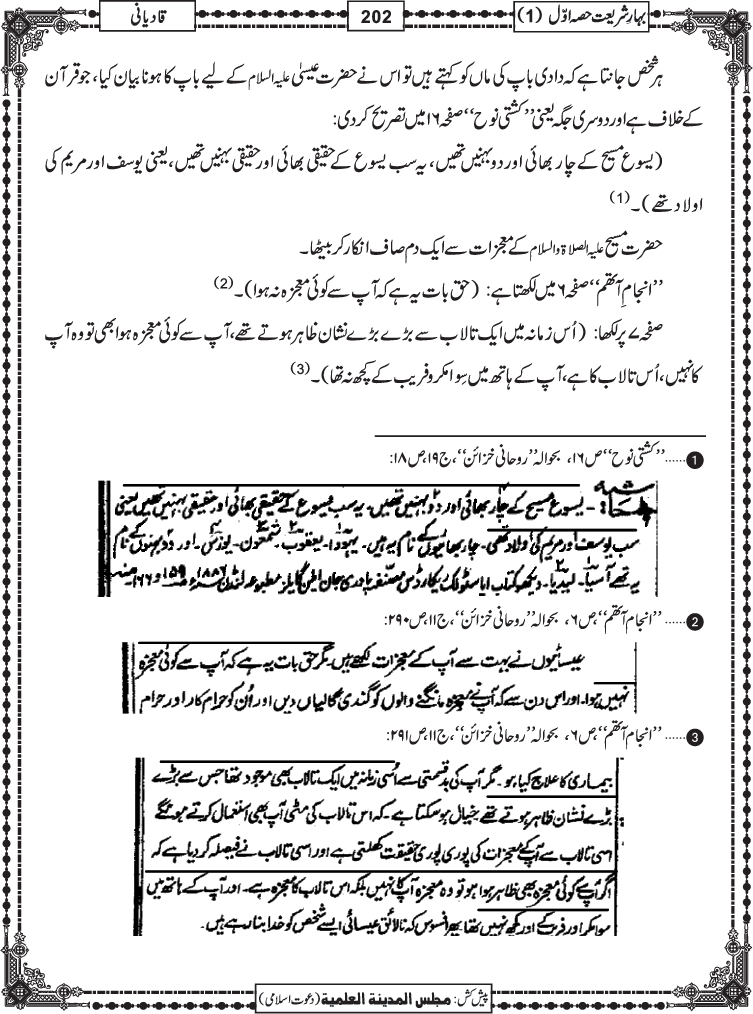 بہارِ شریعت حصہ اوّل (1)
202
قادیانی
ہر شخص جانتا ہے کہ دادی باپ کی ماں کو کہتے ہیں تو اس نے حضرت عیسیٰ علیہ السلام کے لیے باپ کا ہونا بیان کیا، جو قرآن
کے خلاف ہے اور دوسری جگہ یعنی ’’کشتی نوح‘‘ صفحہ ۱۶ میں تصریح کر دی:
(یسوع مسیح کے چار بھائی اور دو بہنیں تھیں، یہ سب یسوع کے حقیقی بھائی اور حقیقی بہنیں تھیں، یعنی یوسف اور مریم کی
اولاد تھے)۔ (1)
حضرت مسیح علیہ الصلاۃ والسلام کے معجزات سے ایک دم صاف انکار کر بیٹھا۔
’’انجامِ آتھم‘‘ صفحہ ۶ میں لکھتا ہے: (حق بات یہ ہے کہ آپ سے کوئی معجزہ نہ ہوا)۔ (2)
صفحہ ۷ پر لکھا: (اُس زمانہ میں ایک تالاب سے بڑے بڑے نشان ظاہر ہوتے تھے، آپ سے کوئی معجزہ ہوا بھی تو وہ آپ
کا نہیں، اُس تالاب کا ہے، آپ کے ہاتھ میں سوا مکر و فریب کے کچھ نہ تھا)۔ (3)
1 ...... ’’کشتی نوح‘‘ ص۱۶، بحوالہ ’’روحانی خزائن‘‘، ج۱۹، ص۱۸:
حاشیہ :۔ یسوع مسیح کے چار بھائی اور دو بہنیں تھیں۔ یہ سب یسوع کے حقیقی بھائی اور حقیقی بہنیں تھیں یعنی
سب یوسف اور مریم کی اولاد تھی۔ چار بھائیوں کے نام یہ ہیں۔ یہودا۔ یعقوب۔ شمعون۔ یوزس۔ اور دو بہنوں کے نام
یہ تھے آسیا۔ لیدیا۔ دیکھو کتاب اپاسٹولک ریکارڈس مصنفہ پادری جان ایلن گایلز مطبوعہ لندن ۱۸۸۶ء صفحہ ۱۵۹ و ۱۶۶ منہ
2 ...... ’’انجام آتھم‘‘، ص۶، بحوالہ ’’روحانی خزائن‘‘، ج۱۱، ص۲۹۰:
عیسائیوں نے بہت سے آپ کے معجزات لکھے ہیں۔ مگر حق بات یہ ہے کہ آپ سے کوئی معجزہ
نہیں ہوا۔ اور اس دن سے کہ آپ نے معجزہ مانگنے والوں کو گندی گالیاں دیں اور اُن کو حرام کار اور حرام
3 ...... ’’انجام آتھم‘‘، ص۶، بحوالہ ’’روحانی خزائن‘‘، ج۱۱، ص۲۹۱:
بیماری کا علاج کیا ہو۔ مگر آپ کی بدقسمتی سے اُسی زمانہ میں ایک تالاب بھی موجود تھا جس سے بڑے
بڑے نشان ظاہر ہوتے تھے خیال ہو سکتا ہے۔ کہ اس تالاب کی مٹی آپ بھی استعمال کرتے ہونگے
اسی تالاب سے آپ کے معجزات کی پوری پوری حقیقت کھلتی ہے اور اسی تالاب نے فیصلہ کر دیا ہے کہ
اگر آپ سے کوئی معجزہ بھی ظاہر ہوا ہو تو وہ معجزہ آپ کا نہیں بلکہ اس تالاب کا معجزہ ہے۔ اور آپ کے ہاتھ میں
سوا مکر اور فریب کے اور کچھ نہیں تھا پھر افسوس کہ نالائق عیسائی ایسے شخص کو خدا بنا رہے ہیں۔
پیش کش: مجلس المدینۃ العلمیۃ (دعوت اسلامی)